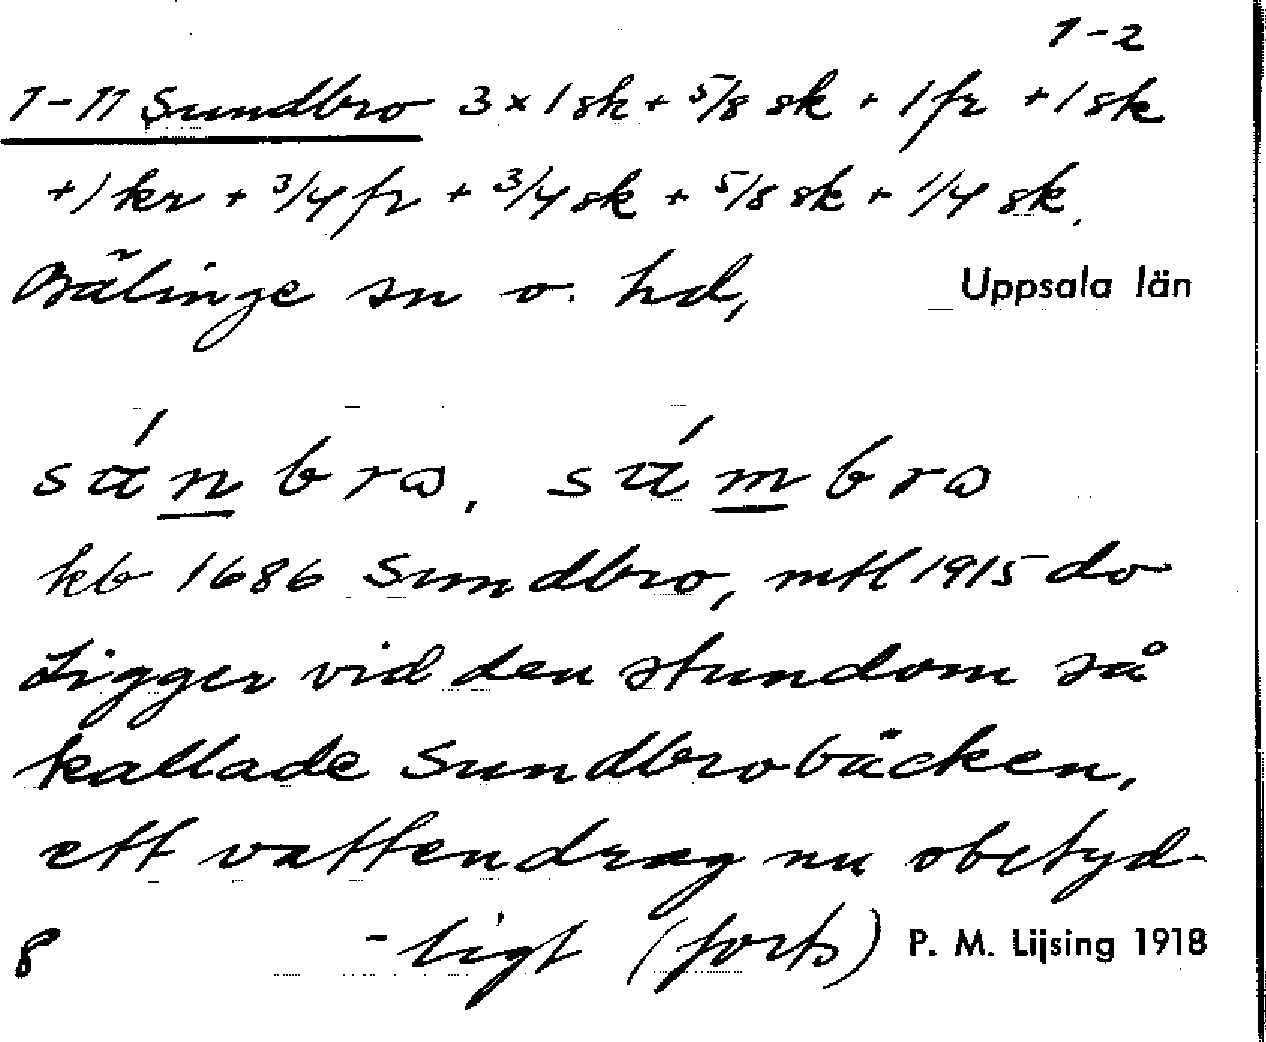 1-2
1-11 Sundbro 3 x 1 sk + 5/8 sk + 1 fr + 1 sk
+ 1 kr + 3/4 fr + 3/4 sk + 5/8 sk + 1/4 sk.
Bälinge sn o. hd, Uppsala län
súnbro, súmbro
kb 1686 Sundbro, mtl 1915 do
Ligger vid den stundom så
kallade Sundbrobäcken,
ett vattendrag nu obetyd-
8 -ligt (forts) P. M. Lijsing 1918